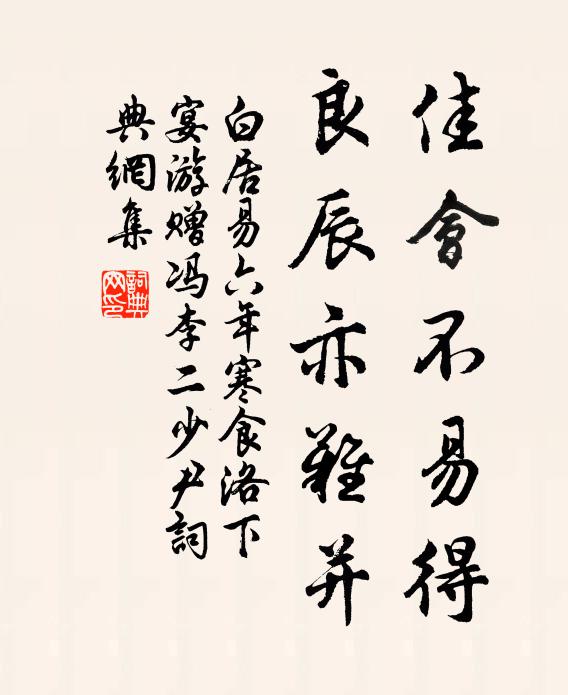 佳會不易得
良辰亦難并
白居易六年寒食洛下
宴游赠冯李二少尹詞
典網集
詞典
网印